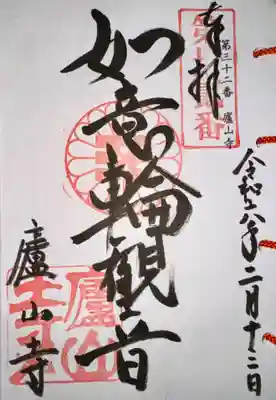 奉拝
第三十二番 廬山寺
令和六年二月十二日
如意輪観音
廬山寺